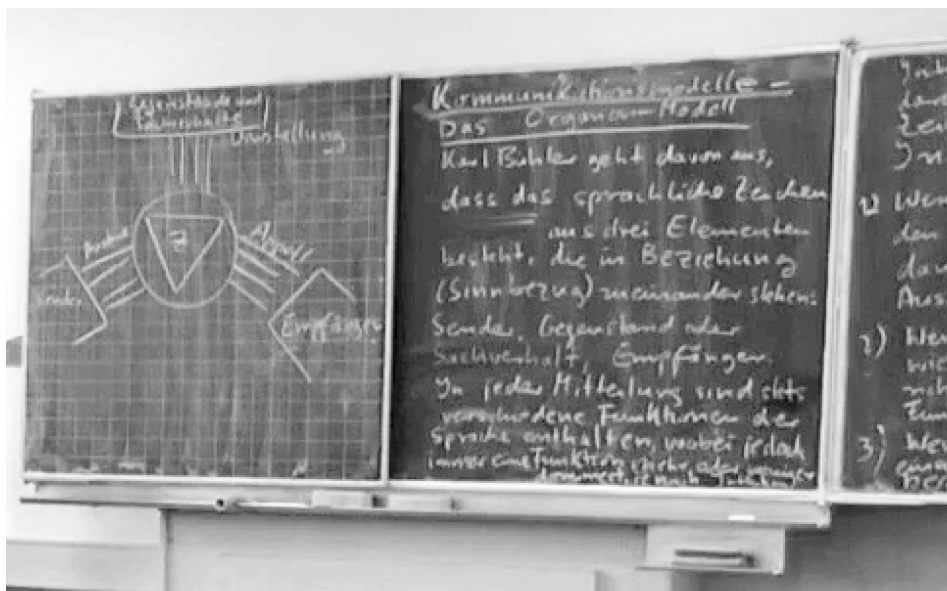 Gegenstände und
Sachverhalte
Darstellung
Z
Ausdruck
Appell
Sender
Empfänger
Kommunikationsmodelle –
Das Organon-Modell
Karl Bühler geht davon aus,
dass das sprachliche Zeichen
aus drei Elementen
besteht, die in Beziehung
(Sinnbezug) zueinander stehen:
Sender, Gegenstand oder
Sachverhalt, Empfänger.
In jeder Mitteilung sind stets
verschiedene Funktionen der
Sprache enthalten, wobei jedoch
immer eine Funktion mehr oder weniger
dominiert je nach
1) Wen
den
2) Wen
3) Wen